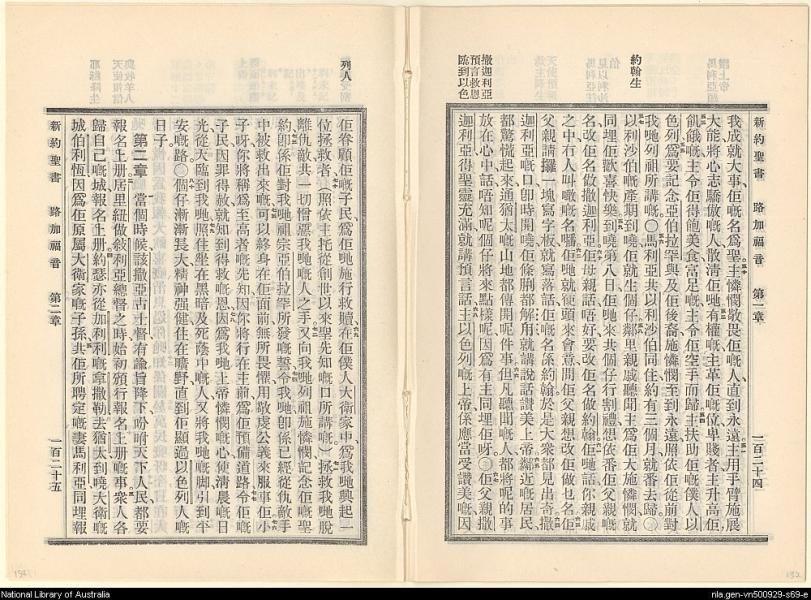 新約聖書 路加福音 第一章 一百二十四
約翰生
撒迦利亞
預言救恩
臨到以色
我成就大事佢嘅名爲聖主憐憫敬畏佢嘅人直到永遠主用手臂施展
大能將心志驕傲嘅人散清佢哋有權嘅主革佢嘅位卑賤者主升高佢
飢餓嘅主令佢得飽美食富足嘅主令佢空手而歸主扶助佢嘅僕人以
色列爲要記念亞伯拉罕與及佢後裔施憐憫至到永遠照依佢從前對
我哋列祖所講嘅〇馬利亞共以利沙伯同住約有三個月就番去歸〇
以利沙伯嘅產期到曉佢就生個仔鄰里親戚聽聞主爲佢大施憐憫就
同埋佢歡喜快樂到曉第八日佢哋來共個仔行割禮想依番佢父親嘅
名改佢名做撒迦利亞佢母親話唔好要改佢名做約翰佢哋話你親戚
之中冇人叫嗰嘅名嘅佢哋就便頭來會意問佢父親想改佢做乜名佢
父親請攞一塊寫字板就寫落話佢嘅名係約翰於是大衆都見出奇撒
迦利亞嘅口卽時開曉佢條脷都解甪就講說話讚美上帝鄰近嘅居民
都驚慌起來通猶太嘅山地都傳開呢件事但凡聽聞嘅人都將呢的事
放在心中話唔知呢個仔將來點樣呢因爲有主同埋佢呀〇佢父親撒
迦利亞得聖靈充滿就講預言話主以色列嘅上帝係應當受讚美嘅因
列人
佢眷顧佢嘅子民爲佢哋施行救贖在佢僕人大衛家中爲我哋興起一
位拯救者(照依主托從創世以來聖先知嘅口所講嘅)拯救我哋脫
離仇敵共一切憎惡我哋嘅人之手又向我哋列祖施憐憫記念佢嘅聖
約卽係佢對我哋祖宗亞伯拉罕所發嘅誓令我哋卽係已經從仇敵手
中被救出來嘅可以終身在佢面前無所畏懼用敬虔公義來服事佢小
子呀你將爲至高者嘅先知因你將行在主前爲佢預備道路令佢嘅
子民因罪得赦就知到得救嘅恩因爲我哋上帝憐憫嘅心使淸晨嘅日
光從天臨到我哋照住坐在黑暗及死蔭中嘅人又將我哋嘅脚引到平
安嘅路〇個仔漸漸長大精神强健住在曠野直到佢顯過以色列人嘅
日子
第二章 當個時候該撒亞古士督有諭旨降下吩咐天下人民都要
報名上册居里紐做敘利亞總督之時始初頒行報名上册嘅事衆人各
歸自己嘅城報名上册約瑟亦從加利利嘅拿撒勒去猶太到曉大衛嘅
城伯利恆因爲佢原屬大衛家嘅子孫共佢所聘定嘅妻馬利亞同埋報
新約聖書 路加福音 第二章 一百二十五
National Library of Australia
nla.gen-vn500929-s69-e